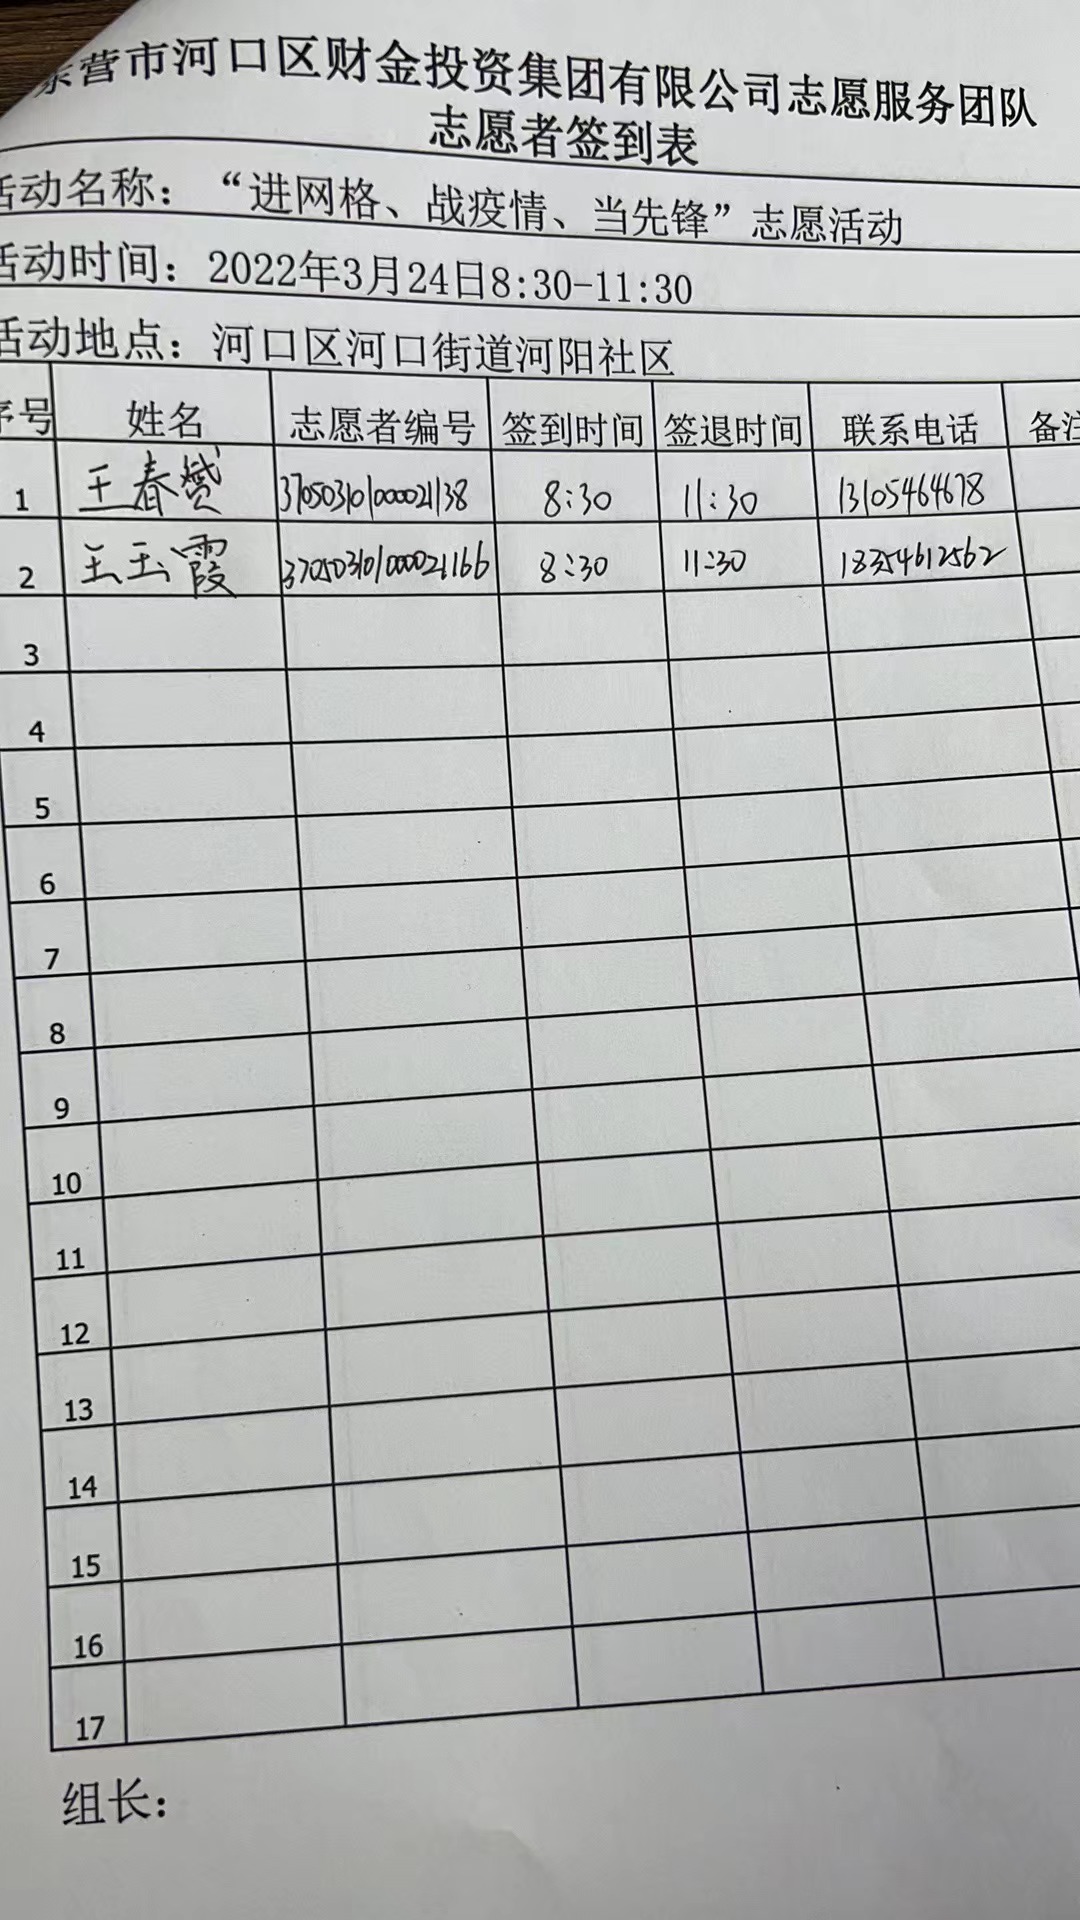 东营市河口区财金投资集团有限公司志愿服务团队
志愿者签到表
活动名称：“进网格、战疫情、当先锋”志愿活动
活动时间：2022年3月24日8:30-11:30
活动地点：河口区河口街道河阳社区
序号 姓名 志愿者编号 签到时间 签退时间 联系电话 备注
1 王春赟 3705031010000021138 8:30 11:30 13105464678
2 王玉霞 3705031010000021166 8:30 11:30 18354612562
3
4
5
6
7
8
9
10
11
12
13
14
15
16
17
组长：